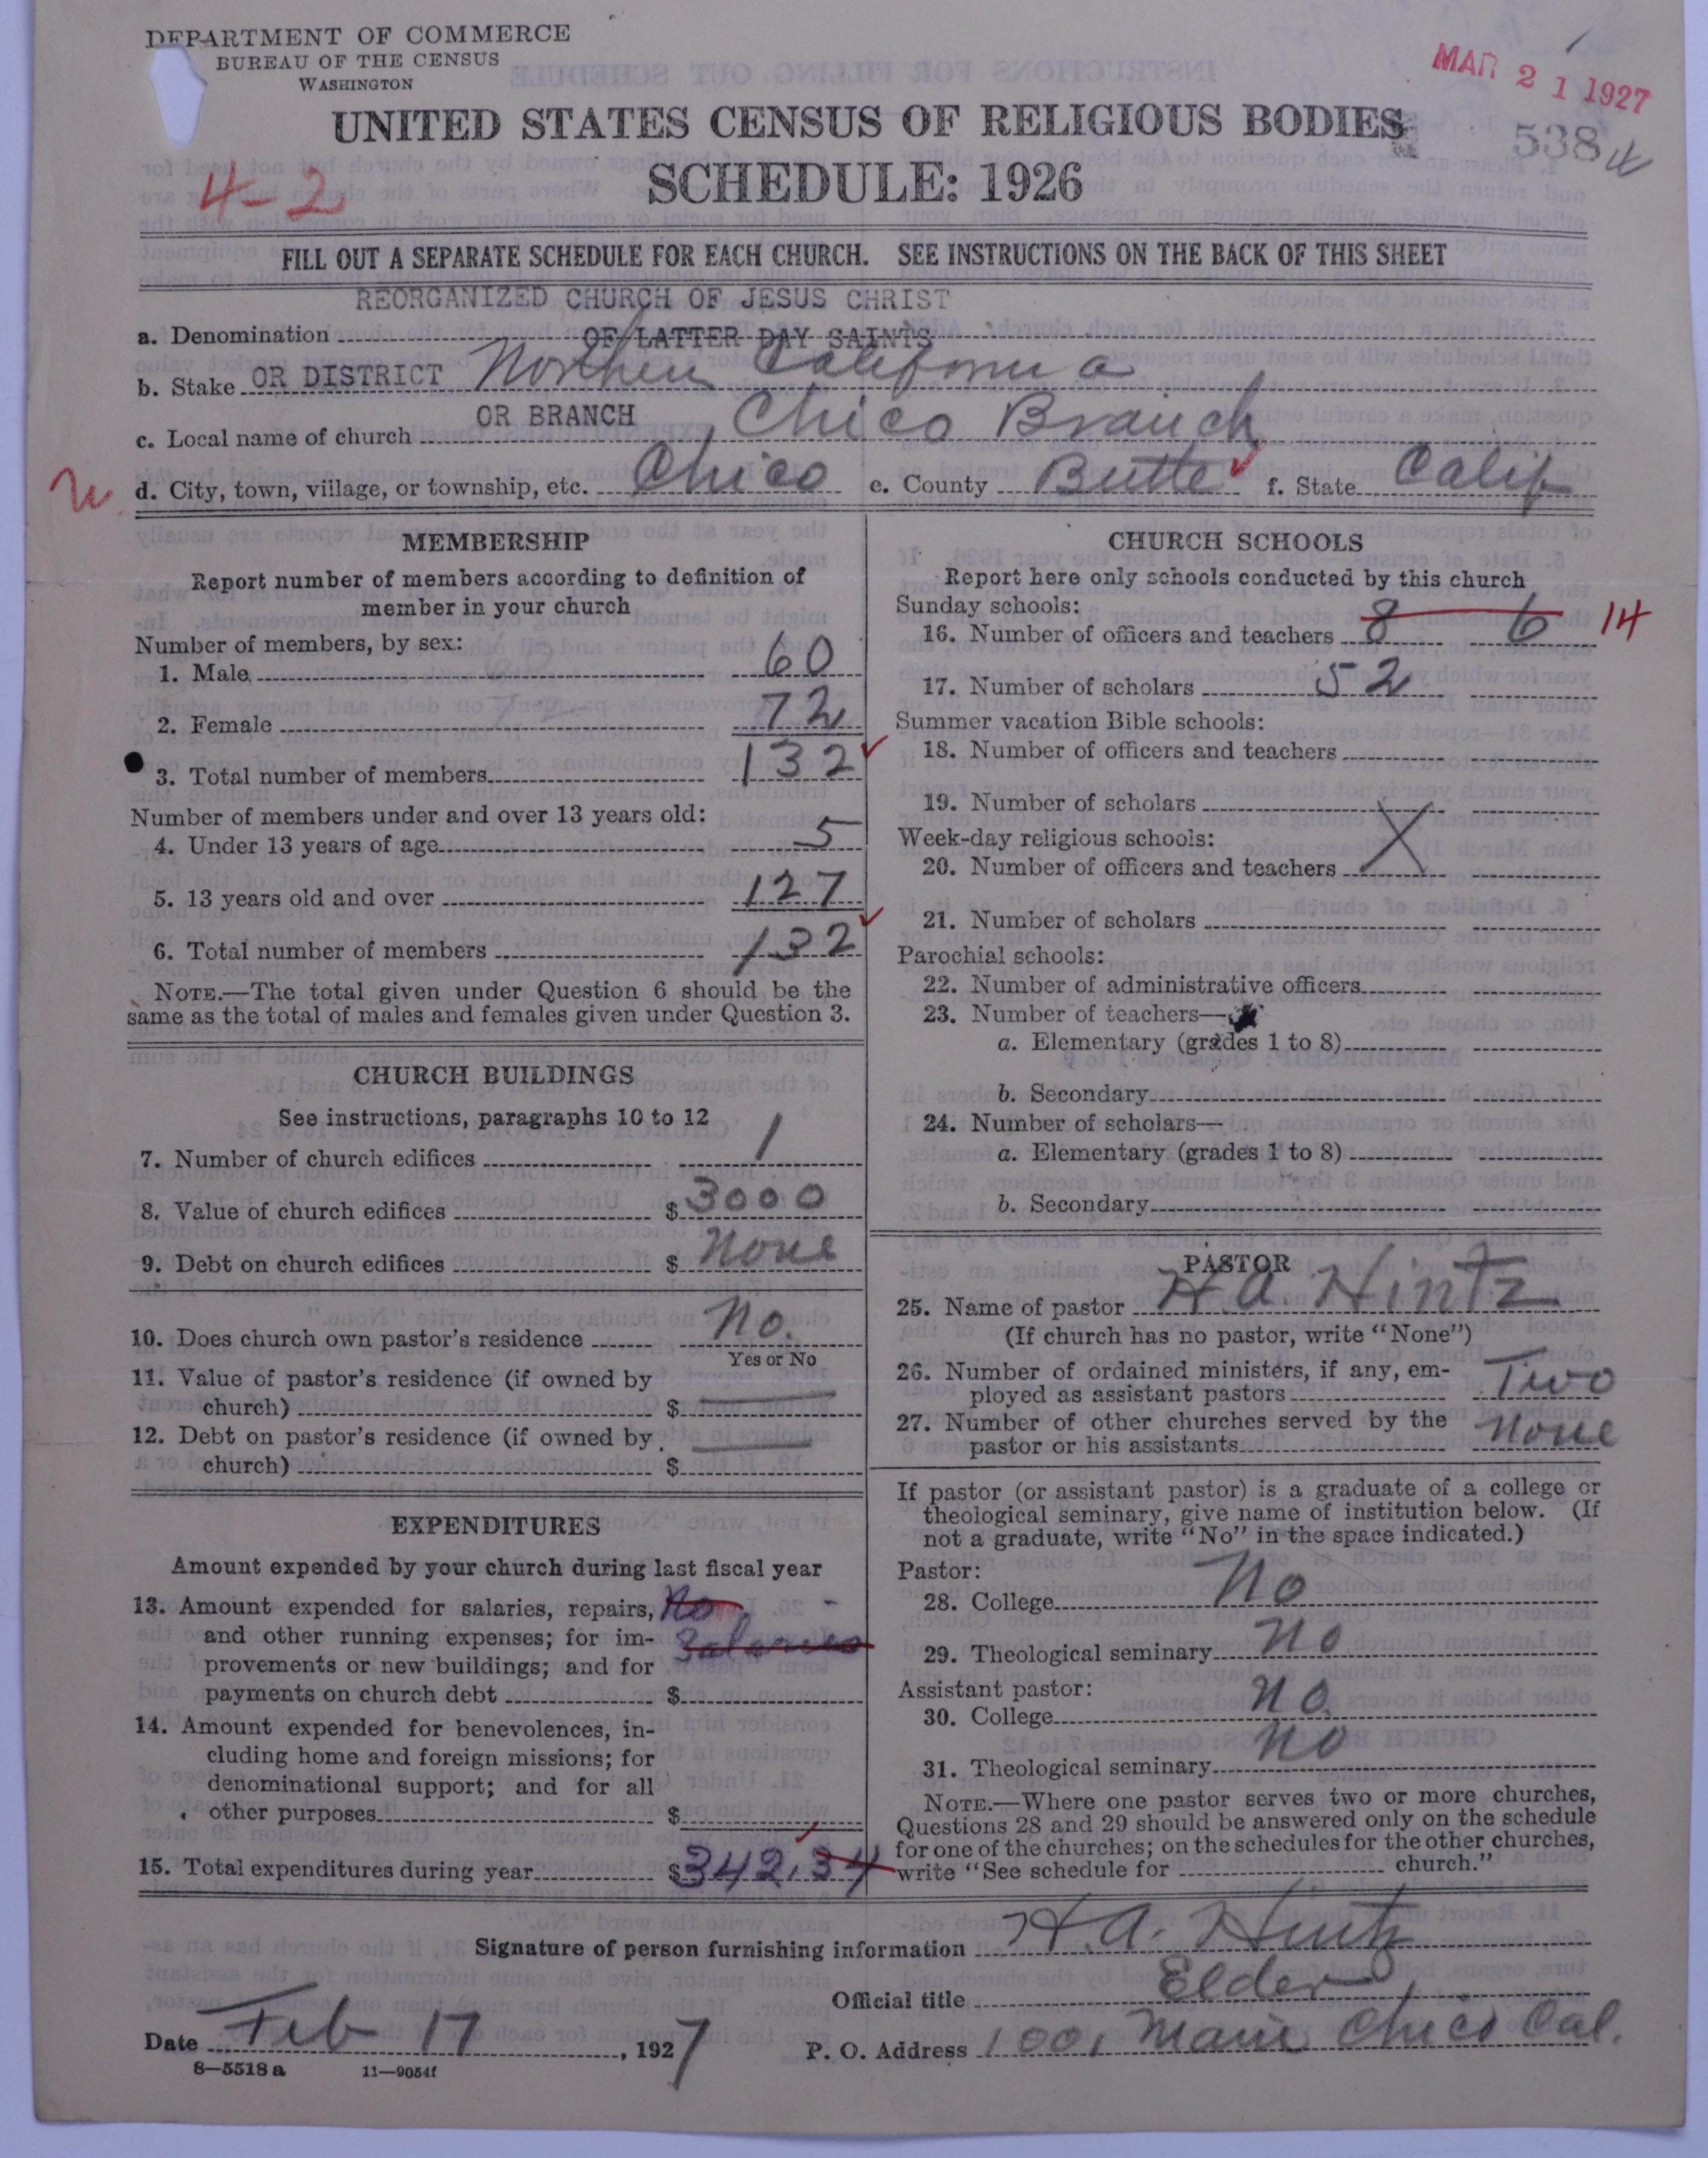 DEPARTMENT OF COMMERCE
BUREAU OF THE CENSUS
WASHINGTON
MAR 21 1927
UNITED STATES CENSUS OF RELIGIOUS BODIES
538
4-2
SCHEDULE: 1926
FILL OUT A SEPARATE SCHEDULE FOR EACH CHURCH. SEE INSTRUCTIONS ON THE BACK OF THIS SHEET
REORGANIZED CHURCH OF JESUS CHRIST
a. Denomination OF LATTER DAY SAINTS
b. Stake OR DISTRICT Northern California
c. Local name of church OR BRANCH Chico Branch
d. City, town, village, or township, etc. Chico e. County Butte f. State Calif
MEMBERSHIP
Report number of members according to definition of
member in your church
Number of members, by sex:
1. Male 60
2. Female 72
3. Total number of members 132
Number of members under and over 13 years old:
4. Under 13 years of age 5
5. 13 years old and over 127
6. Total number of members 132
NOTE.—The total given under Question 6 should be the
same as the total of males and females given under Question 3.
CHURCH BUILDINGS
See instructions, paragraphs 10 to 12
7. Number of church edifices 1
8. Value of church edifices $ 3000
9. Debt on church edifices $ None
10. Does church own pastor's residence No.
Yes or No
11. Value of pastor's residence (if owned by
church) $
12. Debt on pastor's residence (if owned by
church) $
EXPENDITURES
Amount expended by your church during last fiscal year
13. Amount expended for salaries, repairs, No
and other running expenses; for im- Salaries
provements or new buildings; and for
payments on church debt $
14. Amount expended for benevolences, in-
cluding home and foreign missions; for
denominational support; and for all
other purposes $
15. Total expenditures during year $342.34
CHURCH SCHOOLS
Report here only schools conducted by this church
Sunday schools:
16. Number of officers and teachers 8 6 14
17. Number of scholars 52
Summer vacation Bible schools:
18. Number of officers and teachers
19. Number of scholars
Week-day religious schools:
20. Number of officers and teachers
21. Number of scholars
Parochial schools:
22. Number of administrative officers
23. Number of teachers—
a. Elementary (grades 1 to 8)
b. Secondary
24. Number of scholars—
a. Elementary (grades 1 to 8)
b. Secondary
PASTOR
25. Name of pastor H.A. Hintz
(If church has no pastor, write "None")
26. Number of ordained ministers, if any, em-
ployed as assistant pastors Two
27. Number of other churches served by the
pastor or his assistants None
If pastor (or assistant pastor) is a graduate of a college or
theological seminary, give name of institution below. (If
not a graduate, write "No" in the space indicated.)
Pastor:
28. College No
29. Theological seminary No
Assistant pastor:
30. College No
31. Theological seminary No
NOTE.—Where one pastor serves two or more churches,
Questions 28 and 29 should be answered only on the schedule
for one of the churches; on the schedules for the other churches,
write "See schedule for church."
Signature of person furnishing information H.A. Hintz
Official title Elder
Date Feb 17, 1927 P. O. Address 1001 Main Chico Cal.
8—5518 a 11—9054f